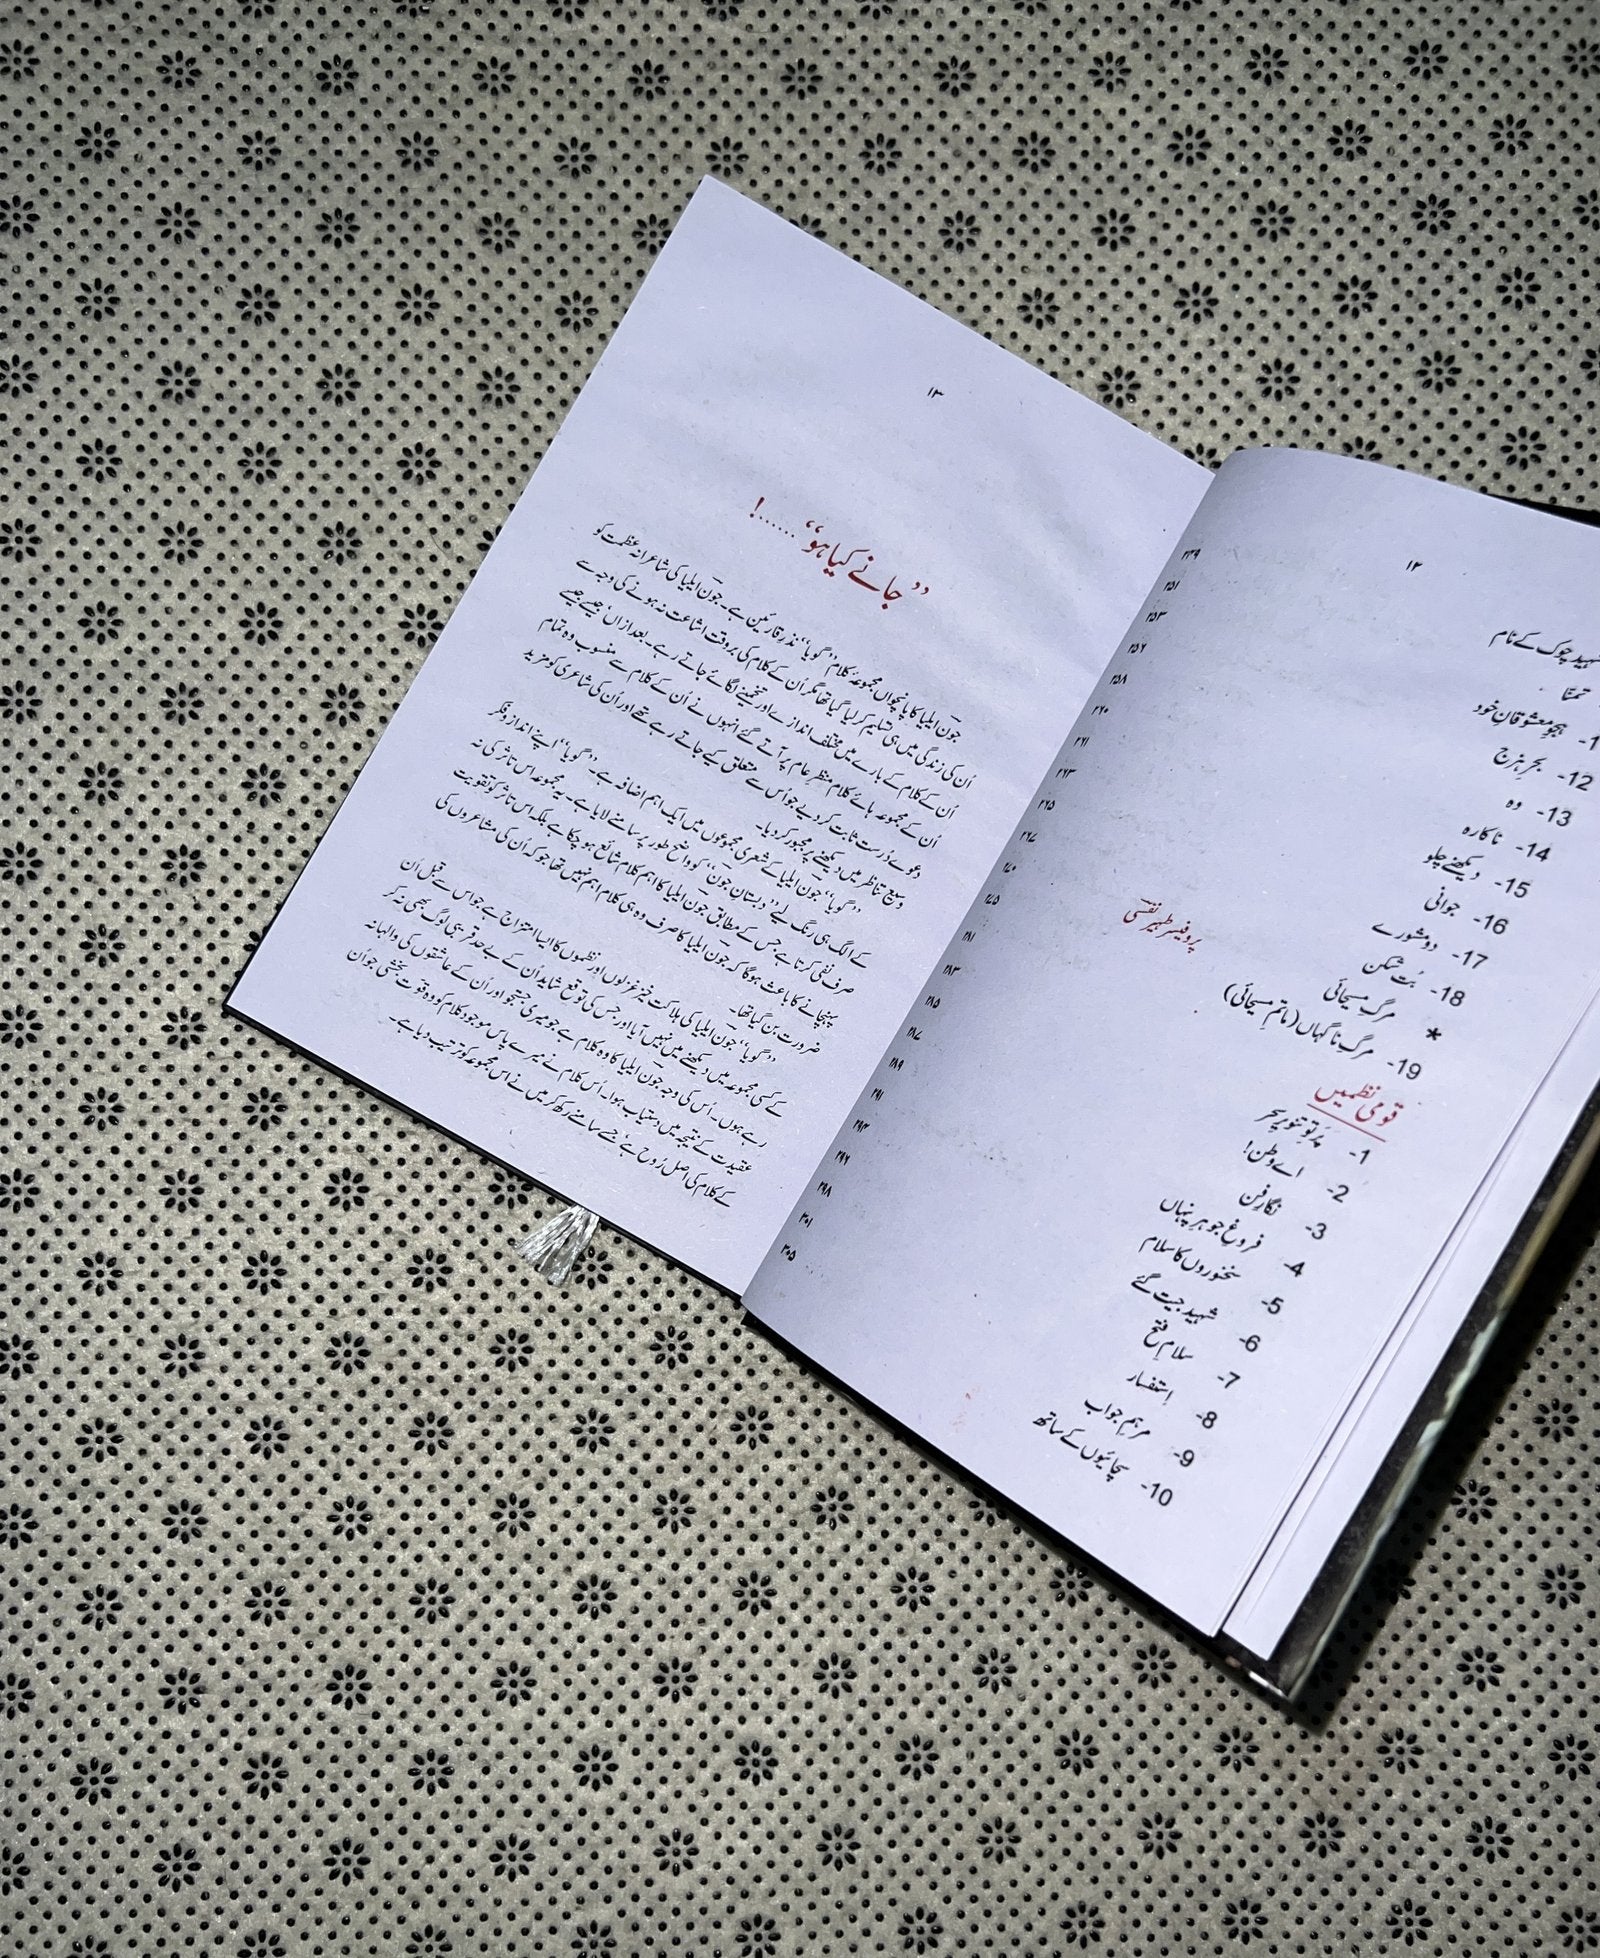 ۱۲
شہید چوک کے نام
تمنّا
ہجوِ معشوقانِ خود
12- بحر ہزج
13- وہ
14- ناکارہ
15- دیکھنے چلو
16- جوانی
17- دو مشورے
18- بُت شکن
* مرگِ مسیحائی
19- مرگِ ناگہاں (ماتمِ مسیحائی)
قومی نظمیں
1- پرتوِ تنویرِ سحر
2- اے وطن!
3- نگارِ فن
4- فروغِ جوہرِ پنہاں
5- سخنوروں کا سلام
6- شہید جیت گئے
7- سلامِ فتح
8- استفسار
9- مرہمِ جواب
10- سچائیوں کے ساتھ
پروفیسر ظہیر نفسی
۲۴۹
۲۵۱
۲۵۳
۲۵۶
۲۵۸
۲۶۰
۲۶۱
۲۶۳
۲۶۵
۲۶۷
۲۷۰
۲۷۵
۲۸۱
۲۸۳
۲۸۵
۲۸۷
۲۸۹
۲۹۱
۲۹۳
۲۹۶
۲۹۸
۳۰۱
۳۰۵
۱۳
”جانے کیا ہو“......!
جون ایلیا کا پانچواں مجموعۂ کلام ”گویا“ نذرِ قارئین ہے۔ جون ایلیا کی شاعرانہ عظمت کو
اُن کی زندگی میں ہی تسلیم کر لیا گیا تھا مگر اُن کے کلام کی بروقت اشاعت نہ ہونے کی وجہ سے
اُن کے کلام کے بارے میں مختلف اندازے اور تخمینے لگائے جاتے رہے۔ بعد ازاں، جیسے جیسے
اُن کے مجموعہ ہائے کلام منظرِ عام پر آتے گئے انہوں نے اُن کے کلام سے منسوب وہ تمام
دعوے دُرست ثابت کر دیے جو اُس سے متعلق کیے جاتے رہے تھے اور اُن کی شاعری کو مزید
وسیع تناظر میں دیکھنے پر مجبور کر دیا۔
”گویا“ جون ایلیا کے شعری مجموعوں میں ایک اہم اضافہ ہے۔ ”گویا“ اپنے انداز و فکر
کے الگ ہی رنگ لیے ”دبستانِ جون“ کو واضح طور پر سامنے لایا ہے۔ یہ مجموعہ اس تاثر کی نہ
صرف نفی کرتا ہے جس کے مطابق جون ایلیا کا اہم کلام شائع ہو چکا ہے بلکہ اس تاثر کو تقویت
پہنچانے کا باعث ہوگا کہ جون ایلیا کا صرف وہ ہی کلام اہم نہیں تھا جو کہ اُن کی مشاعروں کی
ضرورت بن گیا تھا۔
”گویا“ جون ایلیا کی ہلاکت خیز غزلوں اور نظموں کا ایسا امتزاج ہے جو اس سے قبل اُن
کے کسی مجموعہ میں دیکھنے میں نہیں آیا اور جس کی توقع شاید اُن کے بے حد قریبی لوگ بھی نہ کر
رہے ہوں۔ اُس کی وجہ جون ایلیا کا وہ کلام ہے جو میری جستجو اور اُن کے عاشقوں کی والہانہ
عقیدت کے نتیجہ میں دستیاب ہوا۔ اُس کلام نے میرے پاس موجود کلام کو وہ قوت بخشی جو اُن
کے کلام کی اصل رُوح ہے، جسے سامنے رکھ کر میں نے اس مجموعہ کو ترتیب دیا ہے۔